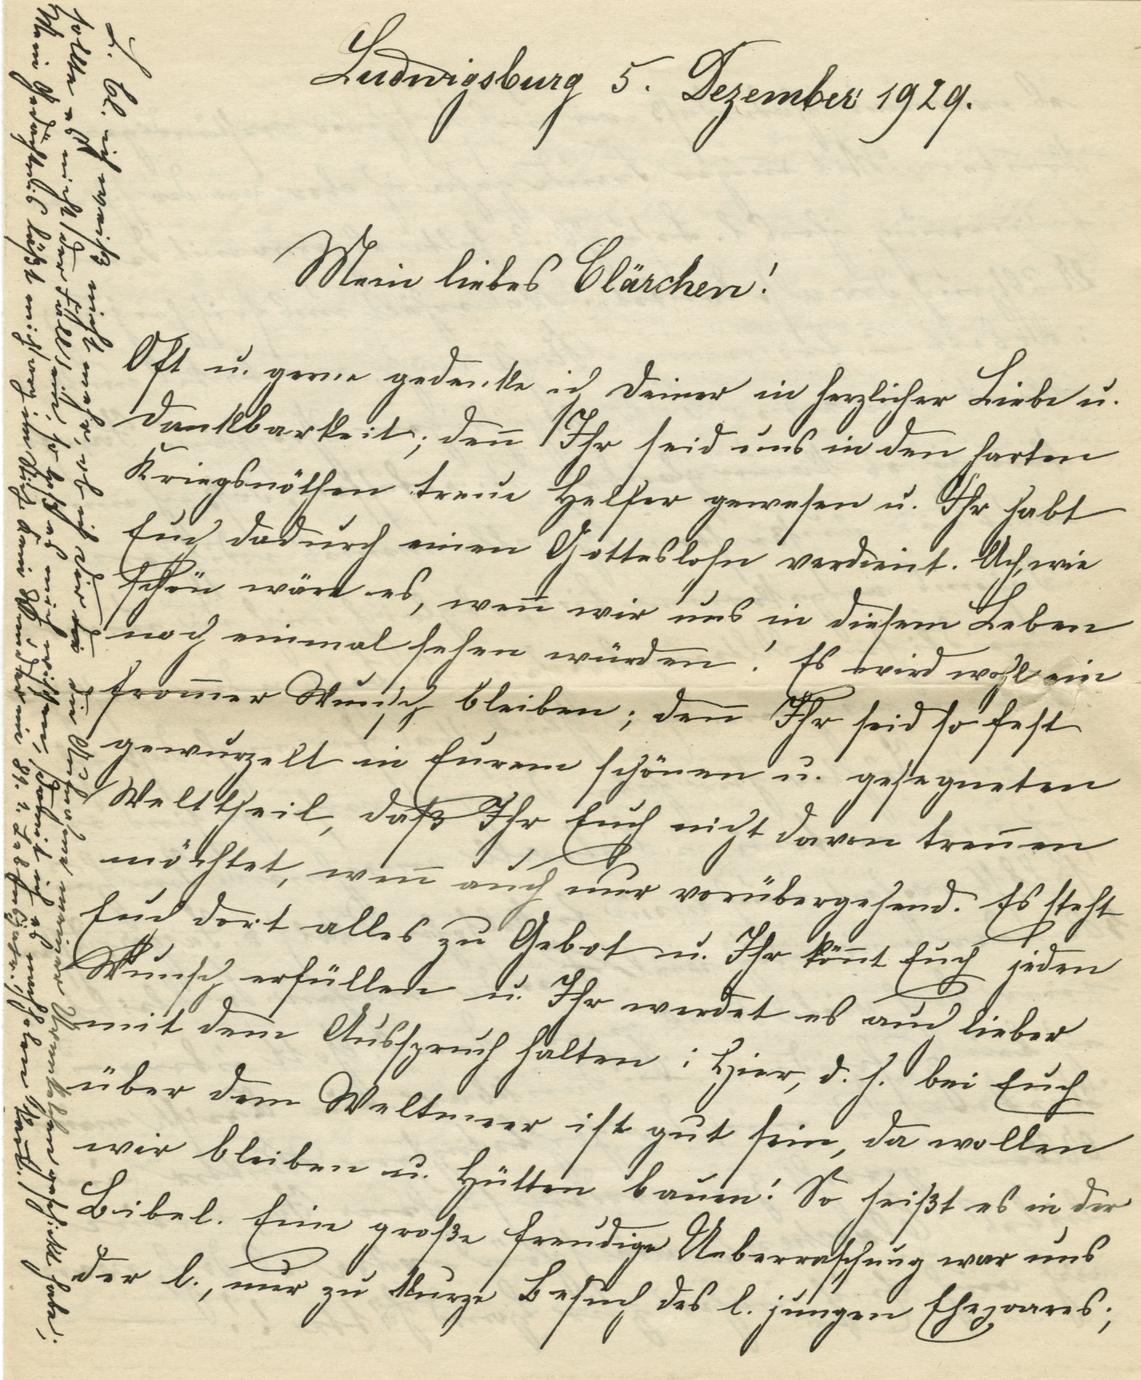 Ludwigsburg 5. Dezember 1929.
Mein liebes Clärchen!
Oft u. gerne gedenke ich Deiner in herzlicher Liebe u.
Dankbarkeit; denn̄ Ihr seid uns in den harten
Kriegsnöthen treue Helfer gewesen u. Ihr habt
Euch dadurch einen Gotteslohn verdient. Ach, wie
schön wäre es, wen̄ wir uns in diesem Leben
noch einmal sehen würden! Es wird wohl ein
from̄er Wunsch bleiben; den̄ Ihr seid so fest
gewurzelt in Eurem schönen u. gesegneten
Welttheil, daß Ihr Euch nicht davon tren̄en
möchtet, wen̄ auch nur vorübergehend. Es steht
Euch dort alles zu Gebot u. Ihr kön̄t Euch jeden
Wunsch erfüllen u. Ihr werdet es auch lieber
mit dem Ausspruch halten: Hier, d. h. bei Euch
über dem Weltmeer ist gut sein, da wollen
wir bleiben u. Hütten bauen! So heißt es in der
Bibel. Eine große freudige Ueberraschung war uns
der l., nur zu kurze Besuch des l. jungen Ehepaares;
L. Cl. ich weiß nicht mehr, ob ich dir die Aufnahme meiner Urenkelchen geschickt habe;
sollte es nicht der Fall sein, so laß es mich wissen, damit ich es nachholen kan̄.
Mein Gedächtnis läßt mich im Stich, kein Wunder mit 84. Lebensjahr!